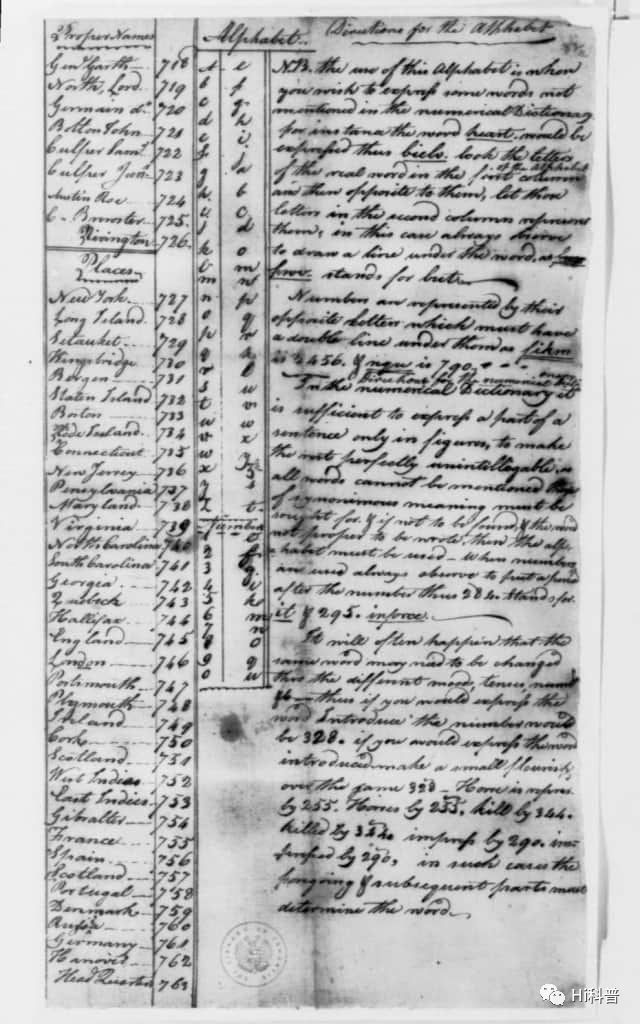 Proper Names
Genl Garth 718
North, Lord 719
Germain do. 720
Bolton John 721
Culper Saml. 722
Culper Junr. 723
Austin Roe 724
C. Brewster 725.
Rivington 726.
Places
New York 727
Long Island 728
Setauket 729
Kingsbridge 730
Bergen 731
Staten Island 732
Boston 733
Rhode Island 734
Connecticut 735
New Jersey 736
Pensylvania 737
Maryland 738
Virginia 739
North Carolina 740
South Carolina 741
Georgia 742
Quebeck 743
Hallifax 744
England 745
London 746
Portsmouth 747
Plymouth 748
Ireland 749
Corke 750
Scotland 751
West Indies 752
East Indies 753
Gibralter 754
France 755
Spain 756
Scotland 757
Portugal 758
Denmark 759
Russia 760
Germany 761
Hanover 762
Head Quarters 763
Alphabet
a e
b f
c g
d h
e i
f j
g a
h b
i c
j d
k o
l m
m n
n p
o q
p r
q k
r l
s u
t v
u w
v x
w y
x z
y s
z t
Numbers
1 e
2 f
3 g
4 i
5 k
6 m
7 n
8 o
9 q
0 u
Directions for the Alphabet
N.B. the use of this Alphabet is when
you wish to express some words not
mentioned in the numerical Dictionary
for instance the word heart. would be
expressed thus biels. look the letters
of the real word in the first column of the Alphabet
and then opposite to them, let those
letters in the second column represent
them, in this case always observe
to draw a line under the word, as
stands for but
Numbers are represented by their
opposite letters which must have
a double line under them as fikm
is 2456. & nqu is 790.
Directions for the numerical
In the numerical Dictionary it
is sufficient to express a part of a
sentence only in figures, to make
the rest perfectly unintellegable, as
all words cannot be mentioned those
of synonimous meaning must be
sought for. & if not to be found, & the word
not proper to be wrote, then the alp-
habet must be used - When numbers
are used always observe to put a period
after the number thus 284. stands for
it & 295. inforce
It will often happen that the
same word may need to be changed
thro the different mood, tenses, numbers
thus if you would express the
word Introduce the number would
be 328. if you would express the word
introduced make a small flourish
over the same 328 - Horse is repres.
by 255. Horses by 255. kill by 344.
killed by 344. impress by 290. im-
pressed by 290, in such cases the
foregoing & subsequent parts must
determine the word
Hi科普